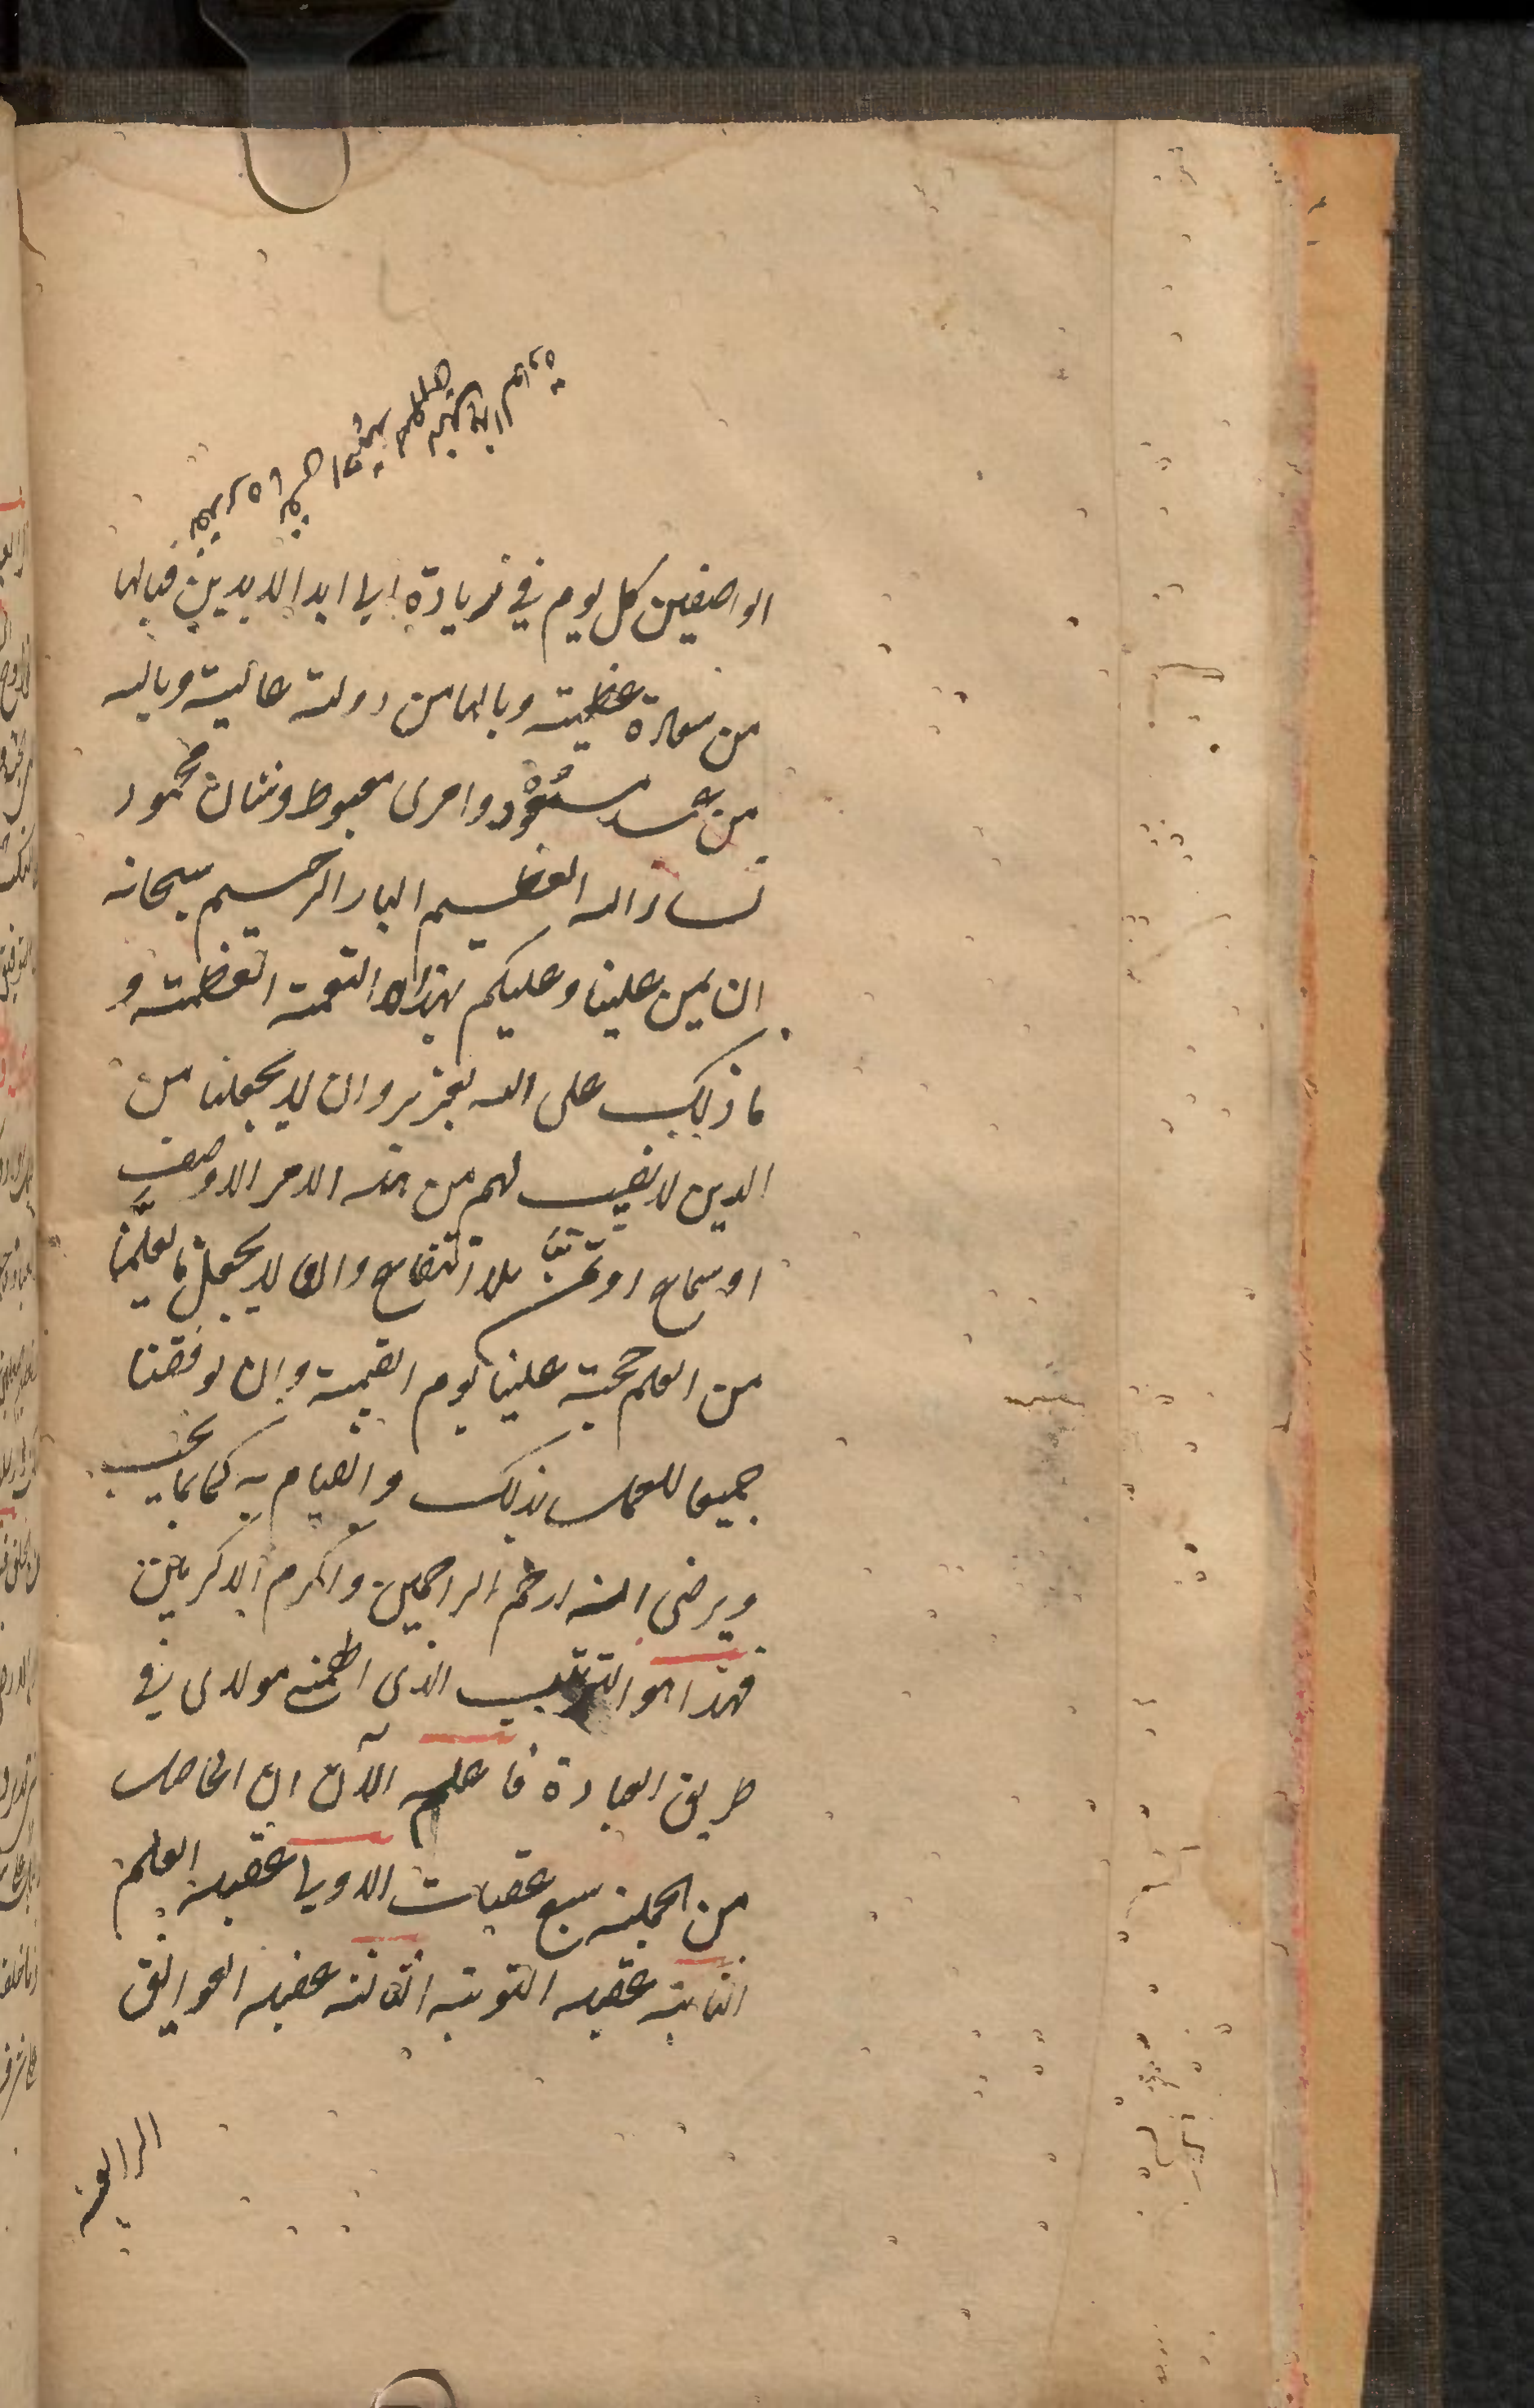 الواصفين كل يوم في زيادة الى ابد الابدين فيالها
من سعادة عظيمة ويالها من دولة عالية وياله
من عبد مسعود وامرى مغبوط وشان محمود
نسال الله العظيم البار الرحيم سبحانه
ان يمن علينا وعليكم بهذه النعمة العظيمة و
ما ذلك على الله بعزيز وان لا يجعلنا من
الذين لا نصيب لهم من هذه الامر الا وصف
او سماع او تمنّ بلا انتفاع وان لا يجعل ما تعلّمنا
من العلم حجة علينا يوم القيمة وان يوفقنا
جميعا للعمل بذلك والقيام به كما يحب
ويرضى انه ارحم الراحمين واكرم الاكرمين
فهذا هو الترتيب الذى الهمنى مولاى في
طريق العبادة فاعلم الآن ان الحاصل
من الجملة سبع عقبات الاولى عقبه العلم
الثانية عقبه التوبة الثالثة عقبه العوائق
الرابعة